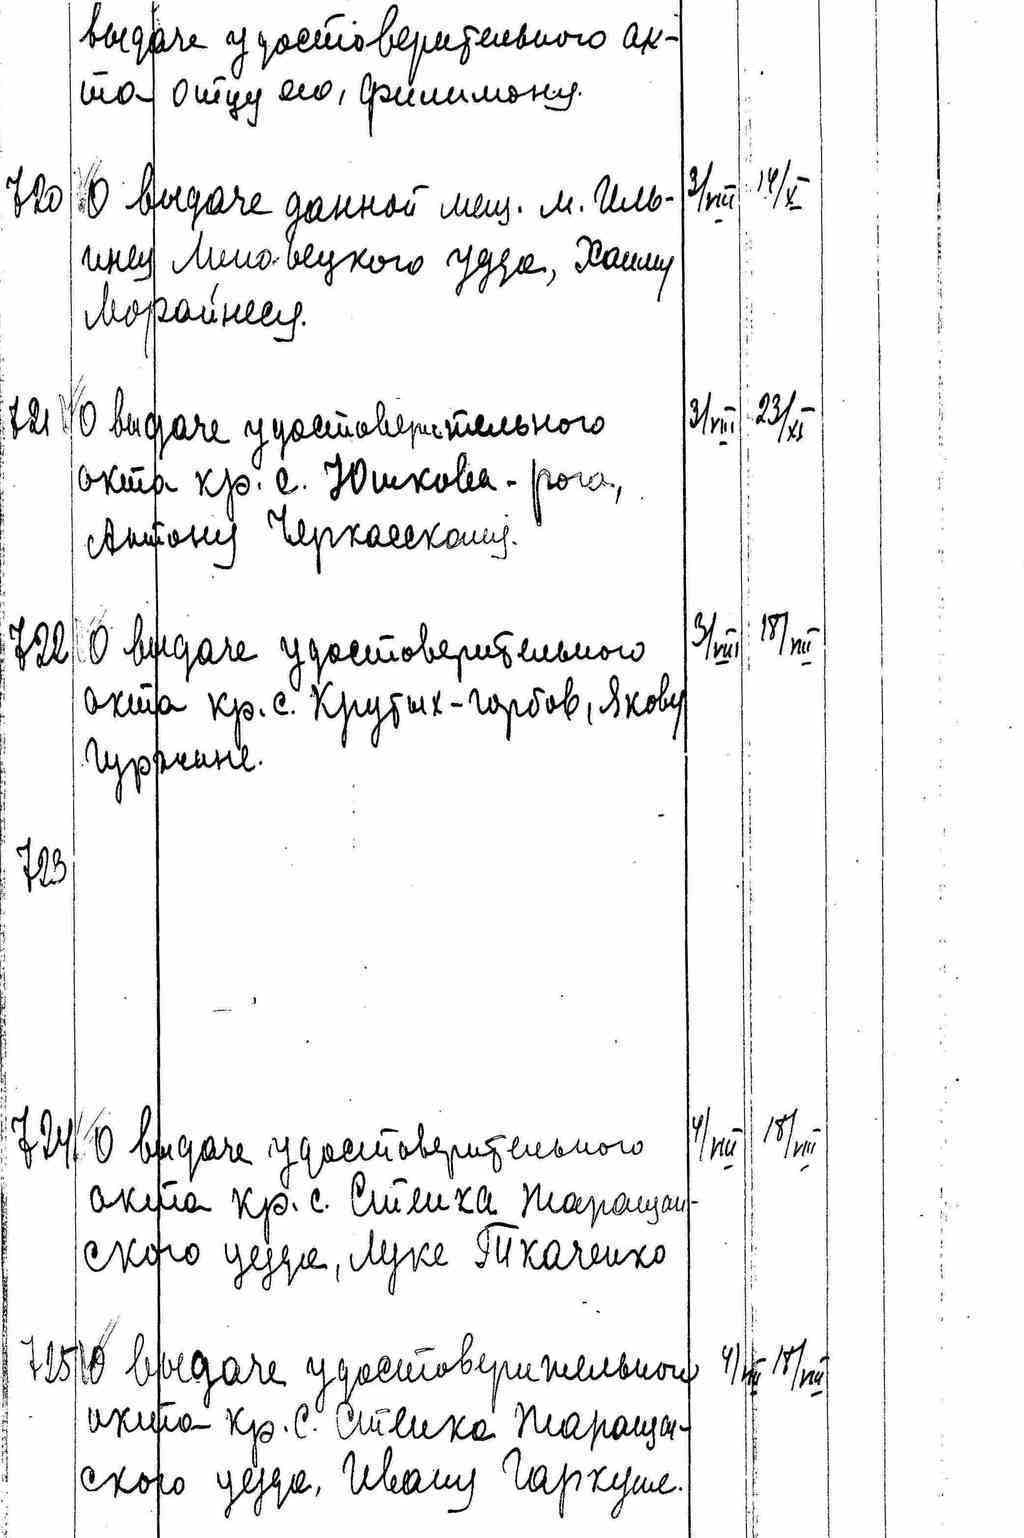 выдаче удостоверительного ак-
та отцу его, Филимону.
720 О выдаче данной мещ. м. Иль- 3/VIII 14/X
инец Липовецкого уезда, Хаиму
Морайнесу.
721 О выдаче удостоверительного 3/VIII 23/XI
акта кр. с. Юшкова-рога,
Антону Черкасскому.
722 О выдаче удостоверительного 3/VIII 18/VIII
акта кр. с. Крутых-горбов, Якову
Гуржине.
723
724 О выдаче удостоверительного 4/VIII 18/VIII
акта кр. с. Стенка Таращан-
ского уезда, Луке Ткаченко
725 О выдаче удостоверительного 4/VIII 18/VIII
акта кр. с. Стенка Таращан-
ского уезда, Ивану Гаркуше.